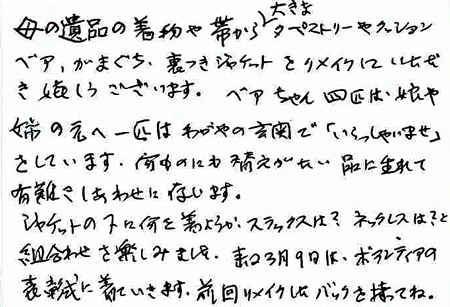 母の遺品の着物や帯から大きなタペストリーやクッション
ベア、がまぐち、裏つきジャケットをリメイクしていただ
き嬉しうございます。ベアちゃん四匹は、娘や
姉の元へ一匹はわがやの玄関で「いらっしゃいませ」
をしています。何ものにも替えがたい品に生れて
有難くしあわせに存じます。
ジャケットの下に何を着ようか、スラックスは？ネックレスは？と
組合わせを楽しみました。3月9日は、ボランティアの
表彰式に着ていきます。前回リメイクしたバックを持ってね。